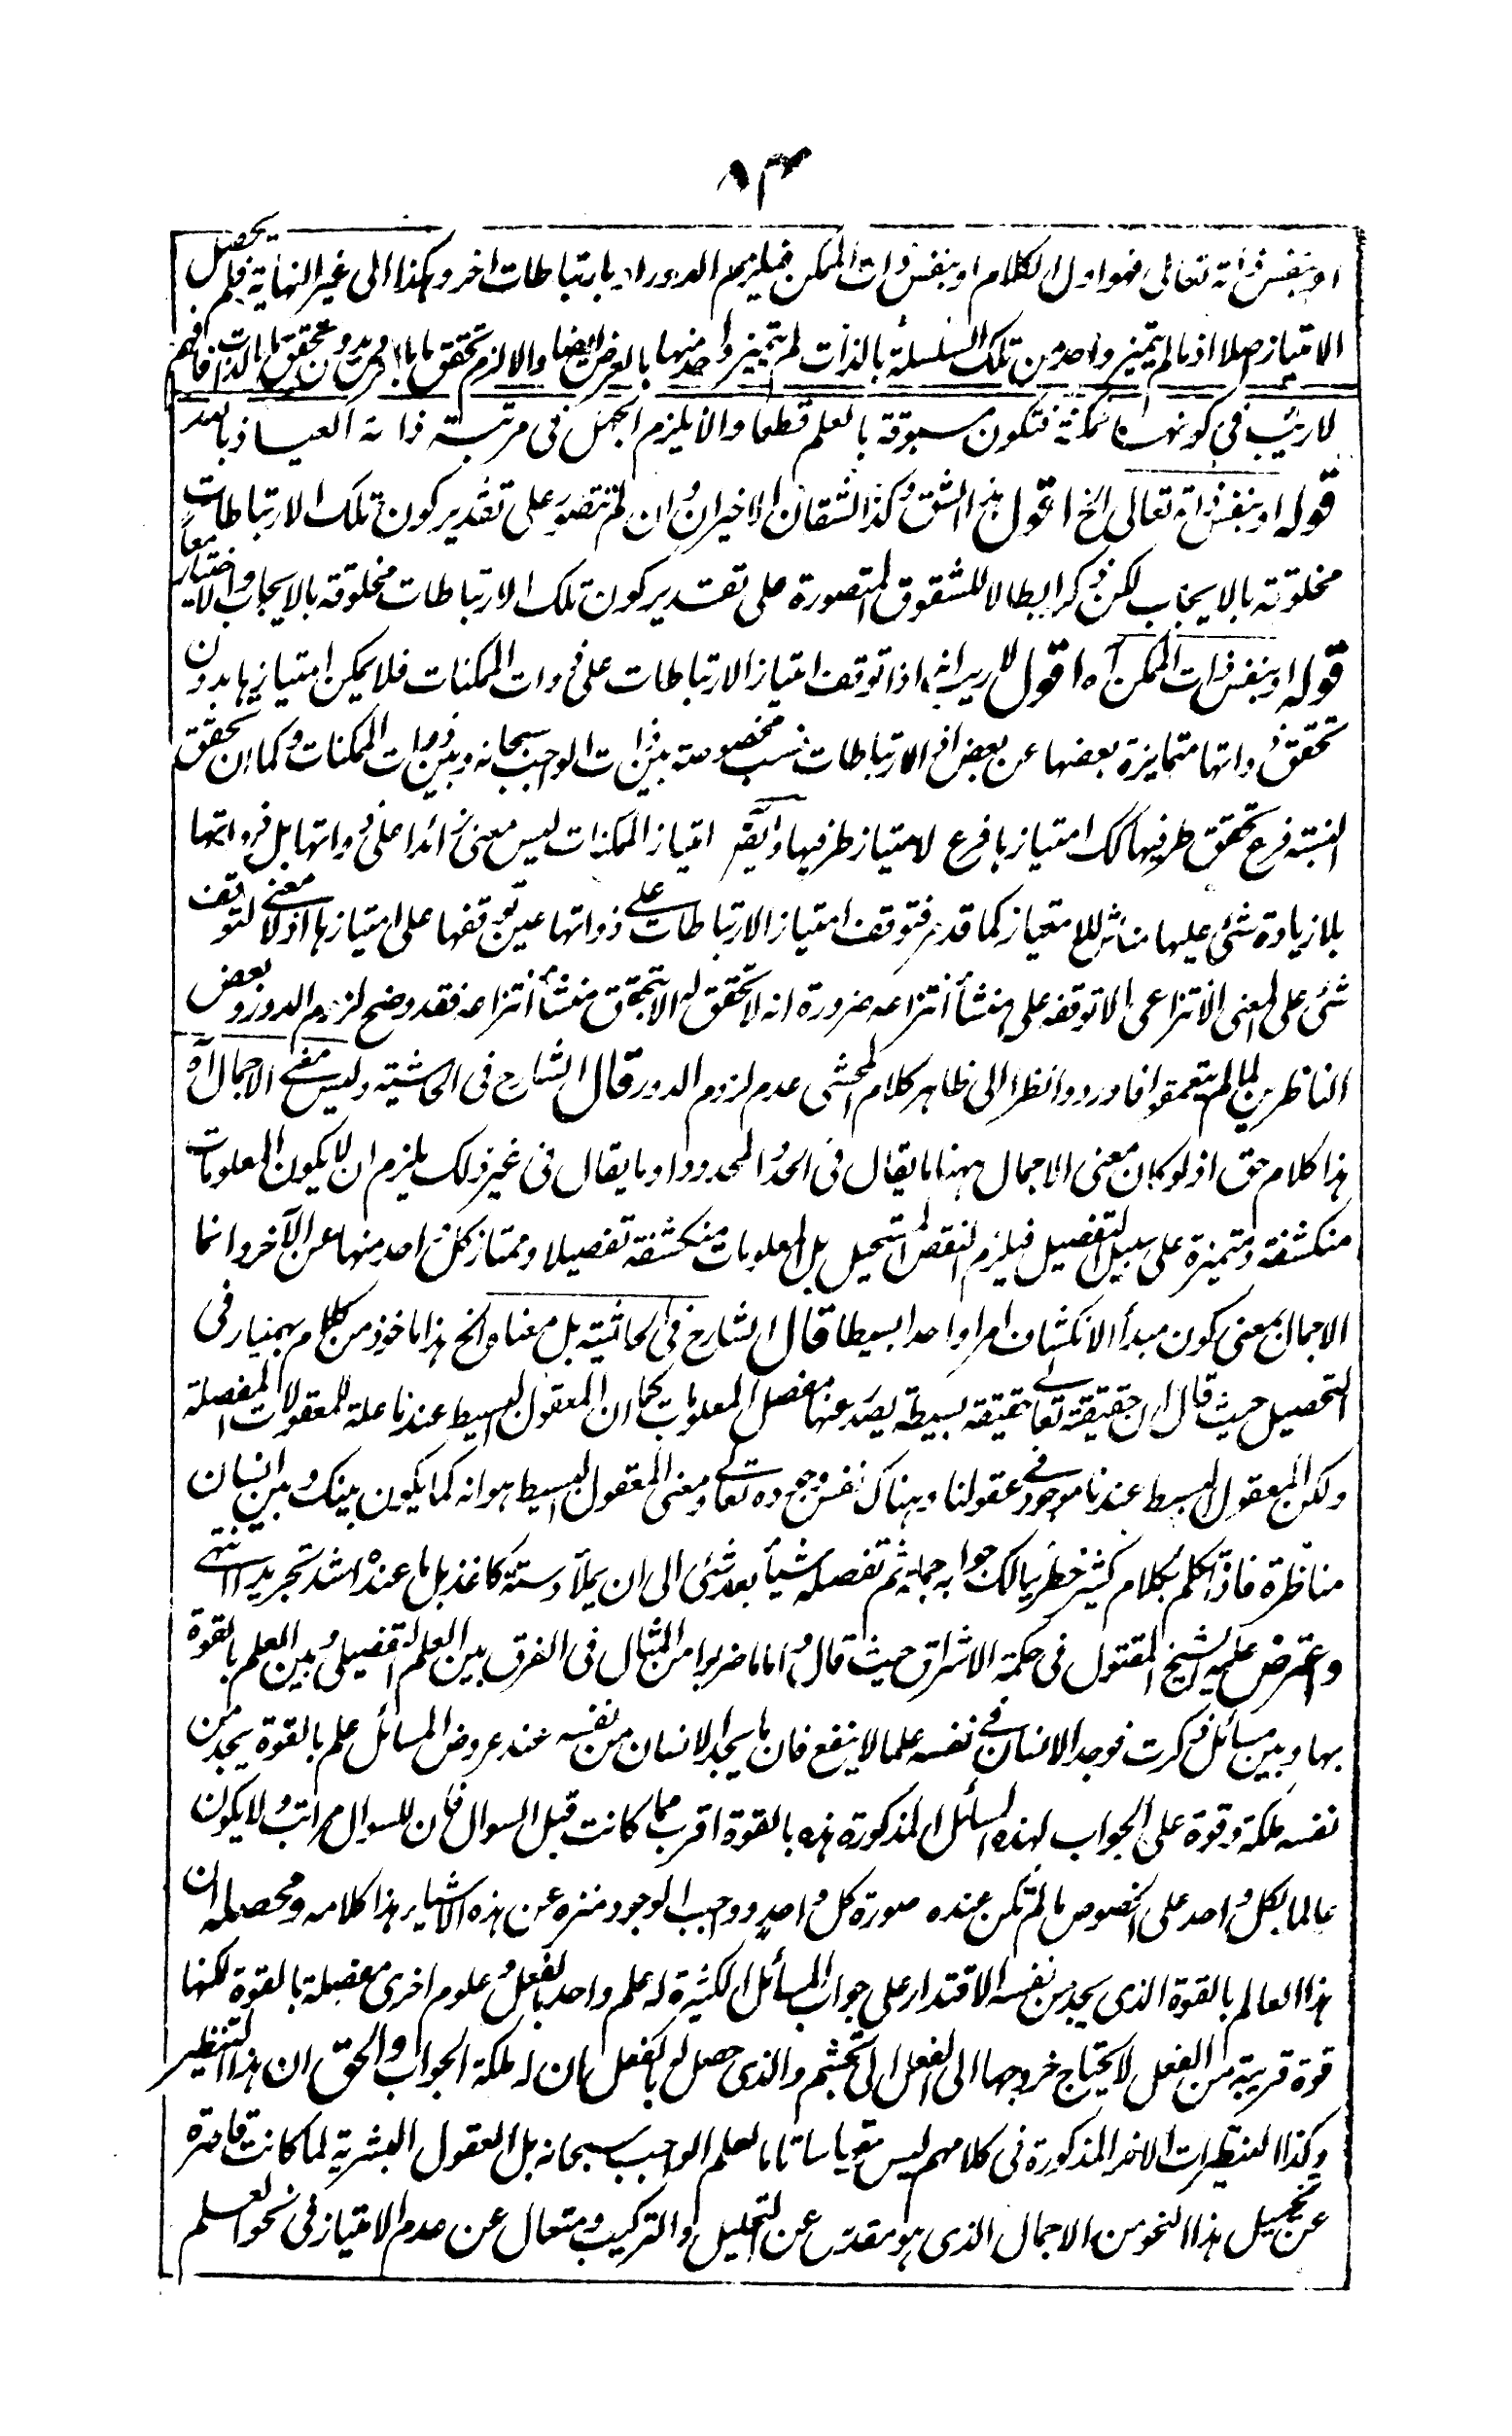 ٨٣
او بنفس ذاته تعالى فهو اول الكلام او بنفس ذات الممكن فيلزم الدور او بارتباطات اخر وهكذا الى غير النهاية فلم يحصل
الامتياز اصلا اذ ما لم يتميز واحد من تلك السلسلة بالذات لم يتميز واحد منها بالعرض ايضا والا لزم تحقق ما بالعرض بدون تحقق ما بالذات فافهم
لا ريب فى كونها ممكنة فتكون مسبوقة بالعلم قطعا والا يلزم الجهل فى مرتبة ذاته العياذ بالله
قوله او بنفس ذاته تعالى الخ اقول هذا الشق وكذا الشقان الاخيران وان لم تتصور على تقدير كون تلك الارتباطات
مخلوقة بالايجاب لكن ذكر ابطالا للشقوق المتصورة على تقدير كون تلك الارتباطات مخلوقة بالايجاب والاختيار معا
قوله او بنفس ذات الممكن آه اقول لا ريب انه اذا توقف امتياز الارتباطات على ذوات الممكنات فلا يمكن امتيازها بدون
تحقق ذواتها متمايزة بعضها عن بعض اذ الارتباطات نسب مخصوصة بين ذات الواجب سبحانه وبين ذوات الممكنات وكما ان تحقق
النسبة فرع تحقق طرفيها كك امتيازها فرع لامتياز طرفيها وايضا امتياز الممكنات ليس معنى زائدا على ذواتها بل ذواتها
بلا زيادة شئ عليها مناشى للامتياز كما قد مر فتوقف امتياز الارتباطات على ذواتها عين توقفها على امتيازها اذ لا معنى لتوقف
شئ على المعنى الانتزاعى الا توقفه على منشأ انتزاعه ضرورة انه لا تحقق له الا بتحقق منشأ انتزاعه فقد وضح لزوم الدور وبعض
الناظرين لما لم يتعمقوا فاوردوا نظرا الى ظاهر كلام المحشى عدم لزوم الدور قال الشارح فى الحاشية وليس معنى الاجمال آه
هذا كلام حق اذ لو كان معنى الاجمال ههنا ما يقال فى الحد والمحدود او ما يقال فى غير ذلك يلزم ان لا يكون المعلومات
منكشفة ومتميزة على سبيل التفصيل فيلزم النقص المستحيل بل المعلومات منكشفة تفصيلا وممتاز كل واحد منها عن الآخر وانما
الاجمال بمعنى كون مبدأ الانكشاف امرا واحدا بسيطا قال الشارح فى الحاشية بل معناه الخ هذا ماخوذ من كلام بهمنيار فى
التحصيل حيث قال ان حقيقته تعالى حقيقة بسيطة يصدر عنها مفصل المعلومات كما ان المعقول البسيط عندنا علة للمعقولات المفصلة
ولكن المعقول البسيط عندنا موجود فى عقولنا وهناك نفس وجوده تعالى ومعنى المعقول البسيط هو انه كما يكون بينك وبين انسان
مناظرة فاذا تكلم بكلام كثير خطر ببالك جوابه جملة ثم تفصله شيأ بعد شئ الى ان يملأ دستة كاغذ بل ما عنده اشد تجريدا انتهى
واعترض عليه الشيخ المقتول فى حكمة الاشراق حيث قال واما ما ضربوا من المثال فى الفرق بين العلم التفصيلى وبين العلم بالقوة
بها وبين مسائل ذكرت فوجد الانسان فى نفسه علما لا ينفع فان ما يجد الانسان من نفسه عند عروض المسائل علم بالقوة يجد من
نفسه ملكة وقوة على الجواب لهذه المسائل المذكورة هذه بالقوة اقرب مما كانت قبل السوال فان للسوال مراتب ولا يكون
عالما بكل واحد على الخصوص ما لم تكن عنده صورة كل واحد وواجب الوجود منزه عن هذه الاشياء هذا كلامه ومحصله ان
هذا العالم بالقوة الذى يجد من نفسه الاقتدار على جواب المسائل الكثيرة له علم واحد بالفعل وعلوم اخرى مفصلة بالقوة لكنها
قوة قريبة من الفعل لا يحتاج خروجها الى الفعل الى تجشم والذى حصل له بالفعل بان له ملكة الجواب والحق ان هذا التنظير
وكذا التنظيرات الاخر المذكورة فى كلامهم ليس مقياسا تاما لعلم الواجب سبحانه بل العقول البشرية لما كانت قاصرة
عن تخييل هذا النحو من الاجمال الذى هو مقدس عن التحليل والتركيب ومتعال عن عدم الامتياز فى نحو العلم